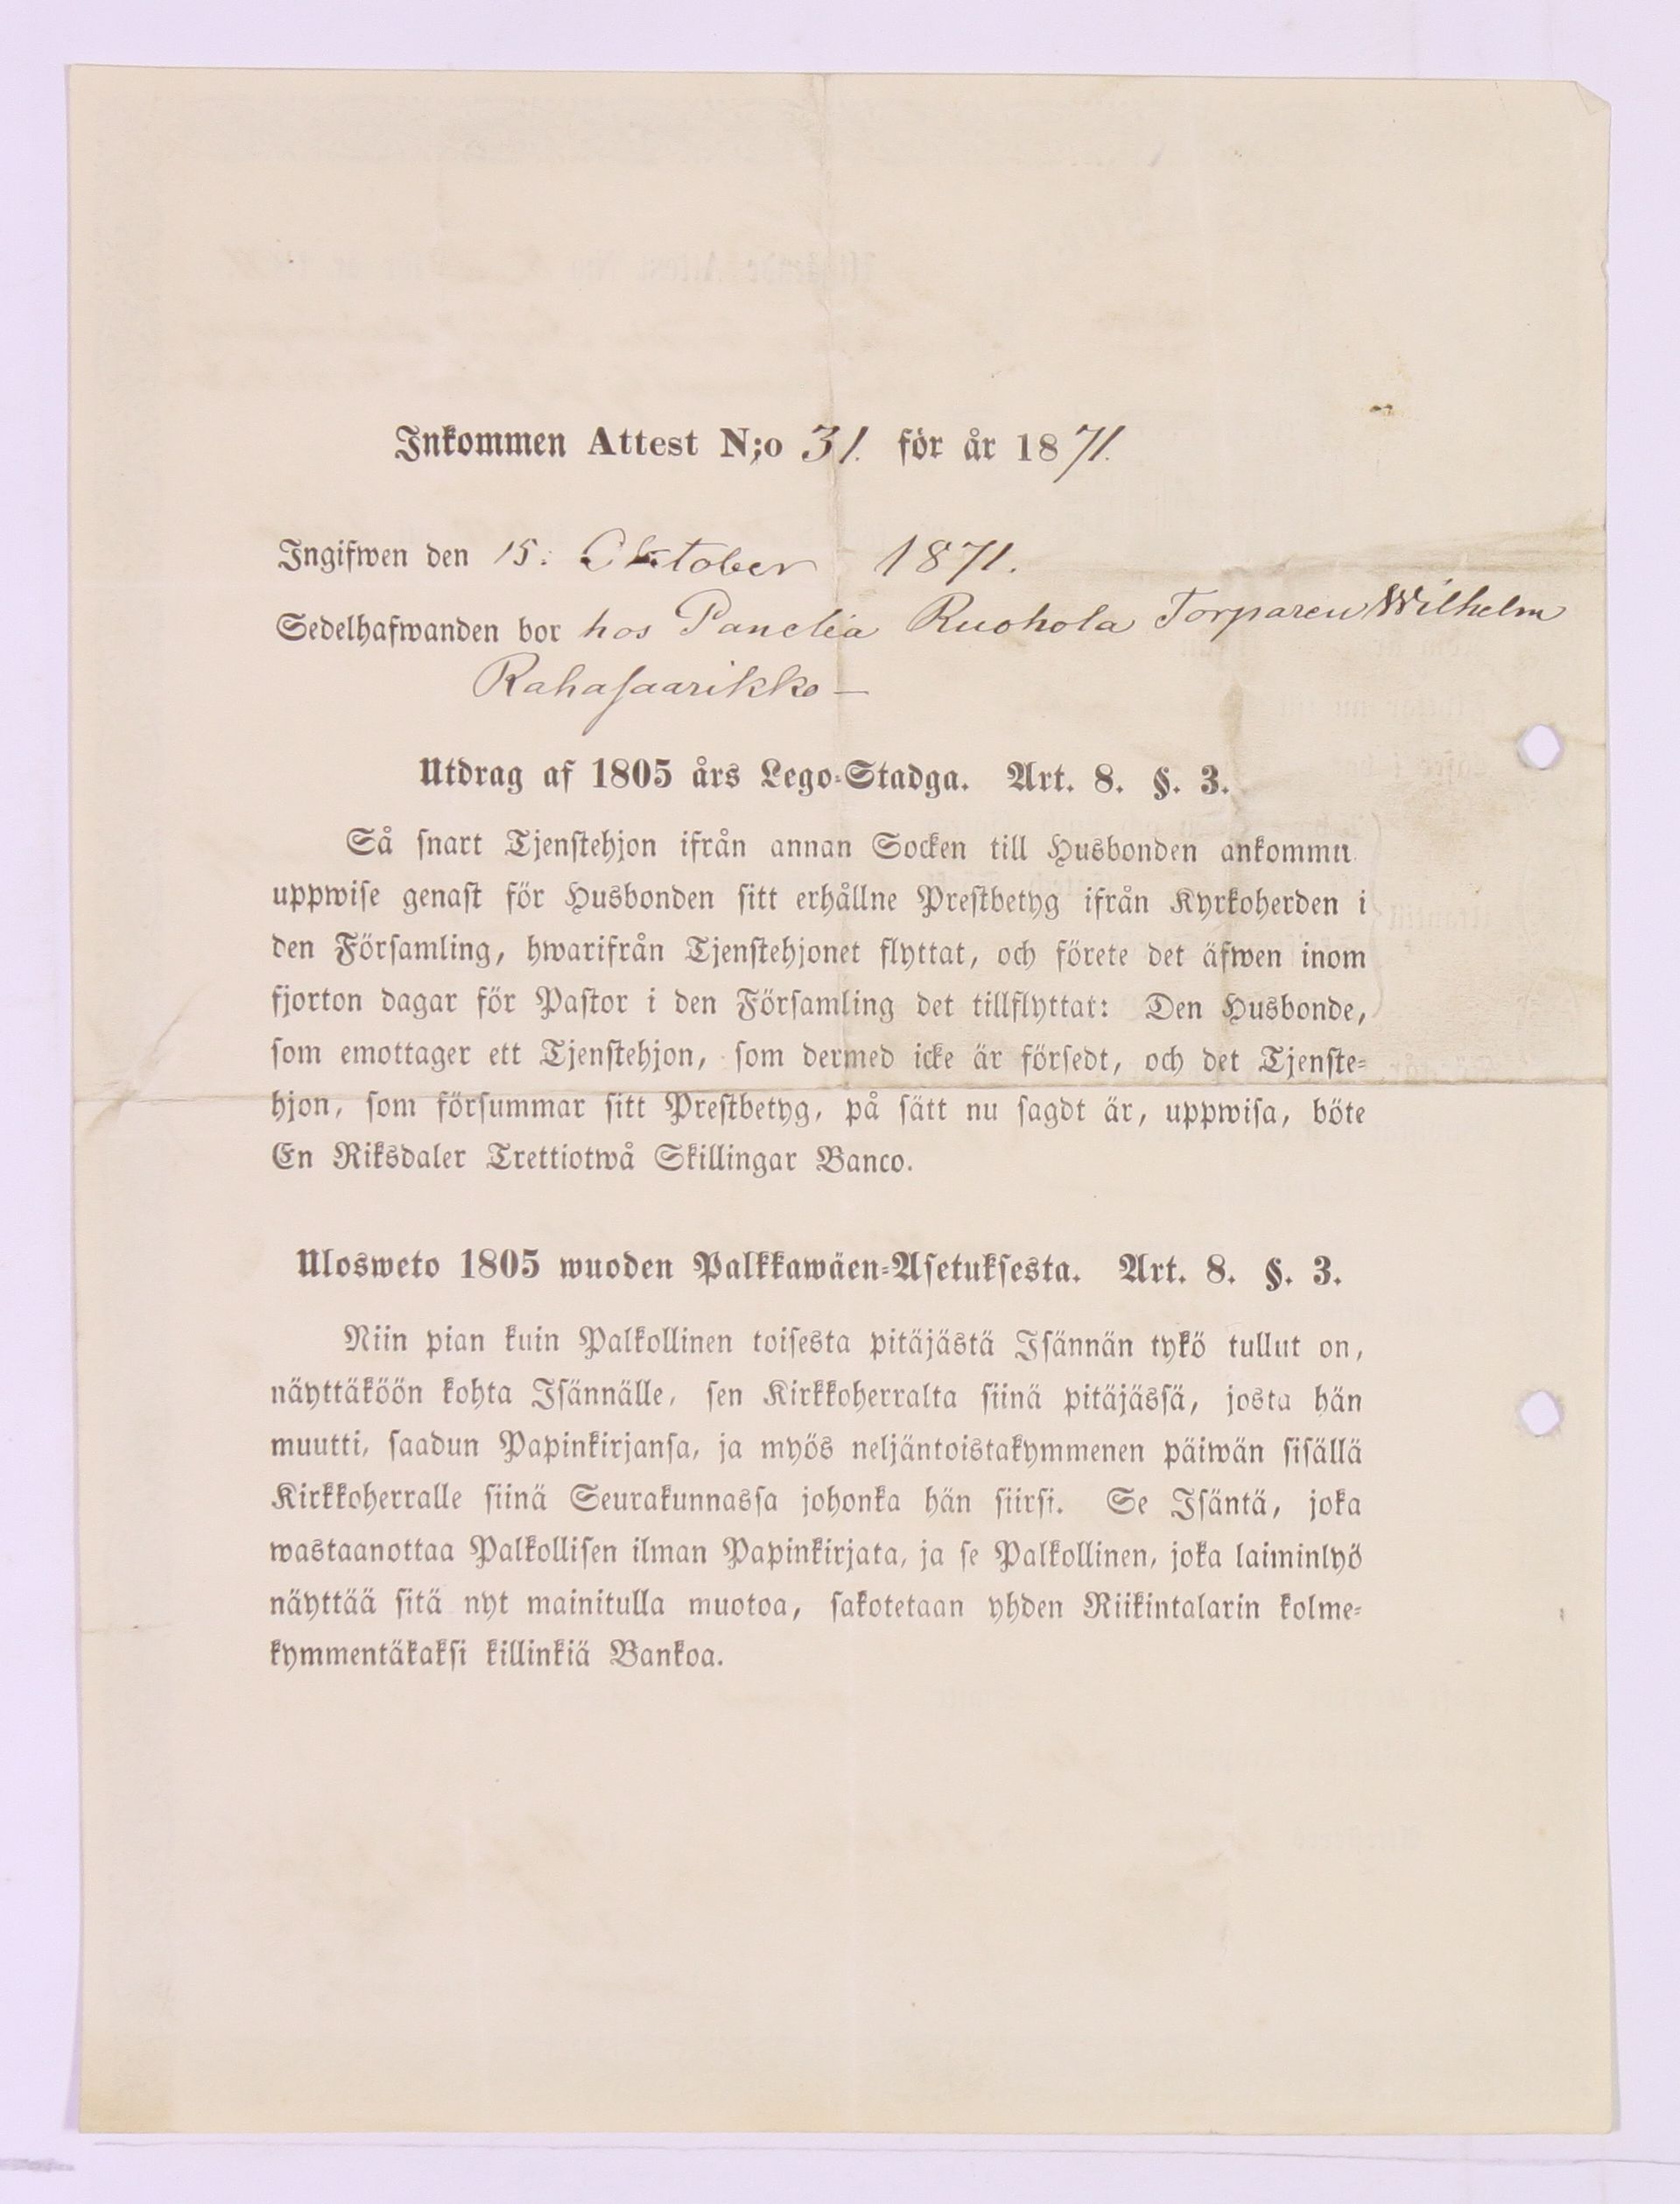 Inkommen Attest N;o 31. för år 1871.
Ingifwen den 15: Oktober 1871.
Sedelhafwanden bor hos Panelia Ruohola Torparen Wilhelm
Rahasaarikko —
Utdrag af 1805 års Lego-Stadga. Art. 8. §. 3.
Så snart Tjenstehjon ifrån annan Socken till Husbonden ankommit
uppwise genast för Husbonden sitt erhållne Prestbetyg ifrån Kyrkoherden i
den Församling, hwarifrån Tjenstehjonet flyttat, och förete det äfwen inom
fjorton dagar för Pastor i den Församling det tillflyttat: Den Husbonde,
som emottager ett Tjenstehjon, som dermed icke är försedt, och det Tjenste-
hjon, som försummar sitt Prestbetyg, på sätt nu sagdt är, uppwisa, böte
En Riksdaler Trettiotwå Skillingar Banco.
Ulosweto 1805 wuoden Palkkawäen-Asetuksesta. Art. 8. §. 3.
Niin pian kuin Palkollinen toisesta pitäjästä Isännän tykö tullut on,
näyttäköön kohta Isännälle, sen Kirkkoherralta siinä pitäjässä, josta hän
muutti, saadun Papinkirjansa, ja myös neljäntoistakymmenen päiwän sisällä
Kirkkoherralle siinä Seurakunnassa johonka hän siirsi. Se Isäntä, joka
wastaanottaa Palkollisen ilman Papinkirjata, ja se Palkollinen, joka laiminlyö
näyttää sitä nyt mainitulla muotoa, sakotetaan yhden Riikintalarin kolme-
kymmentäkaksi killinkiä Bankoa.